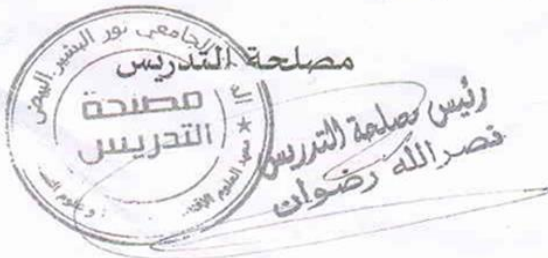 مصلحة التدريس
الجامعي نور البشير البيض
مصلحة
التدريس
معهد العلوم
و علوم
رئيس مصلحة التدريس
نصر الله رضوان